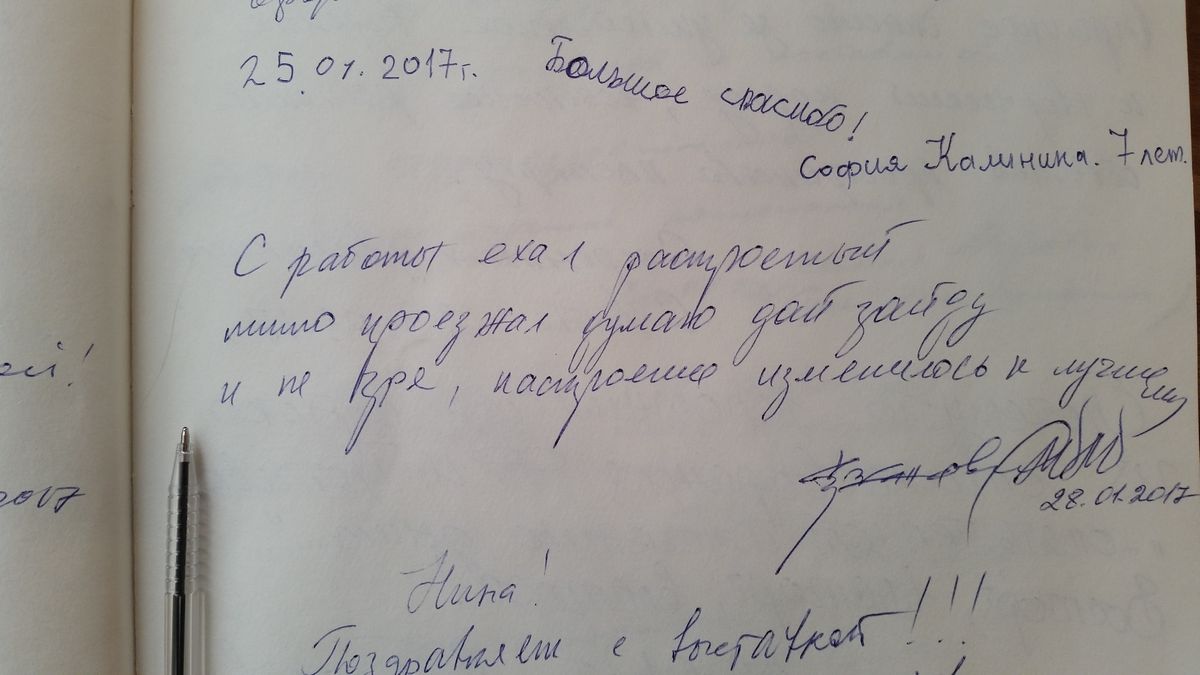 25.01.2017г. Большое спасибо!
София Калинина. 7 лет.
С работы ехал расстроеный
мимо проезжал думаю дай зайду
и не зря, настроение изменилось к лучшему
28.01.2017
Нина!
Поздравляем с выставкой!!!
ой!
2017